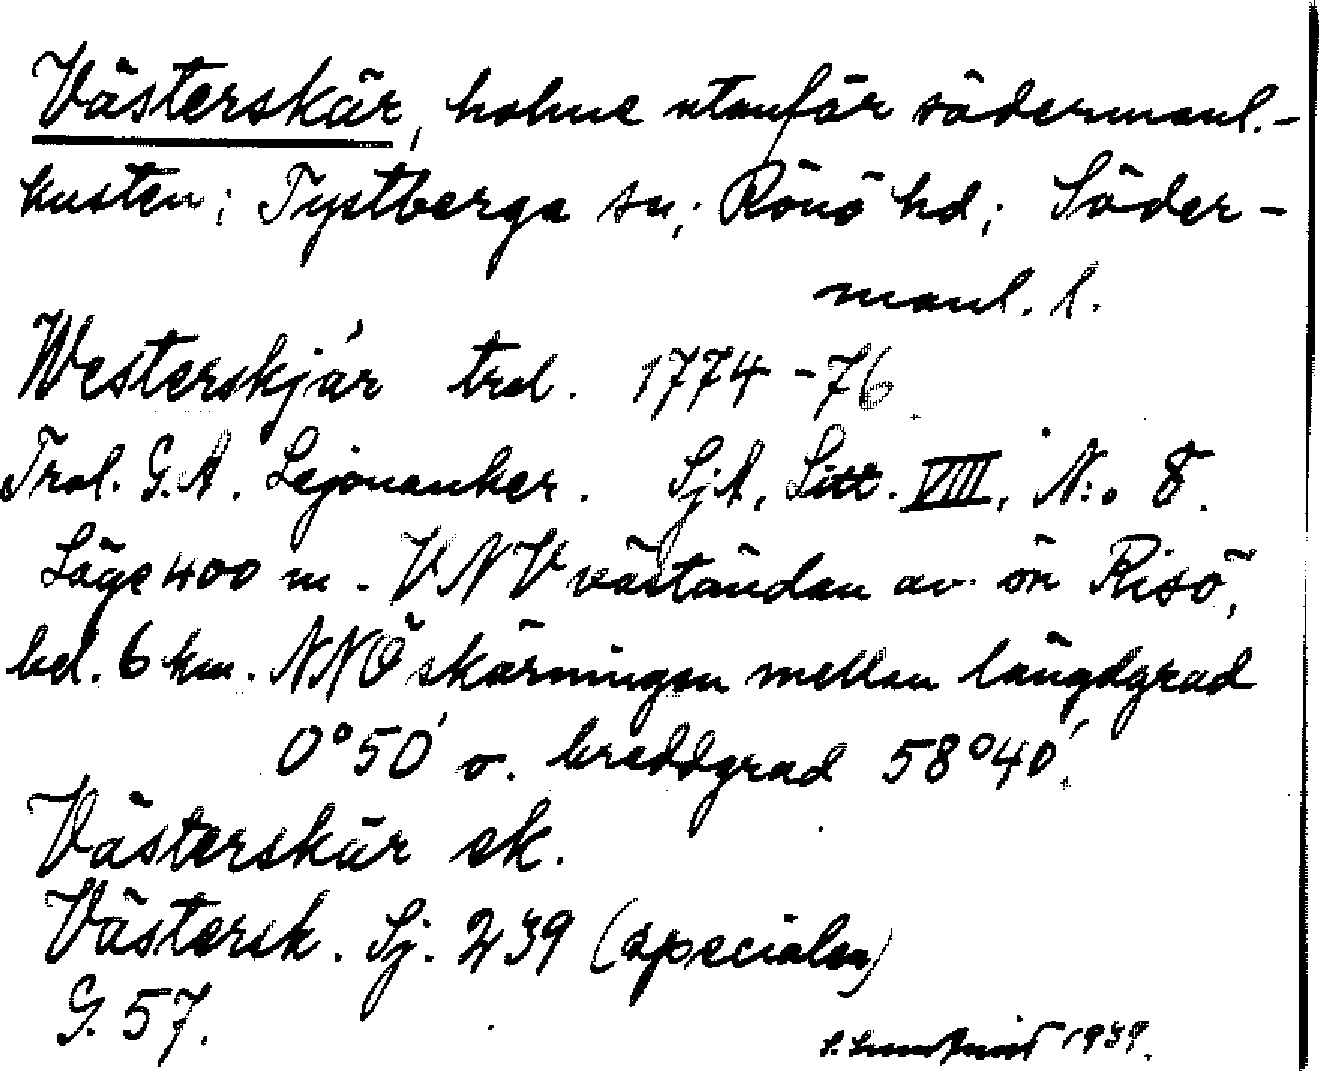 Västerskär, holme utanför södermanl.-
kusten; Tystberga sn; Rönö hd; Söder-
manl. l.
Westerskjär trol. 1774-76
Trol. G. A. Lejonanker. SjA, Litt. VIII, N:o 8.
Läge 400 m. VNV väständan av ön Risö,
bel. 6 km. NNÖ skärningen mellan längdgrad
0°50' o. breddgrad 58°40'.
Västerskär ek.
Västersk. Sj. 239 (specialen)
G. 57.
1939.